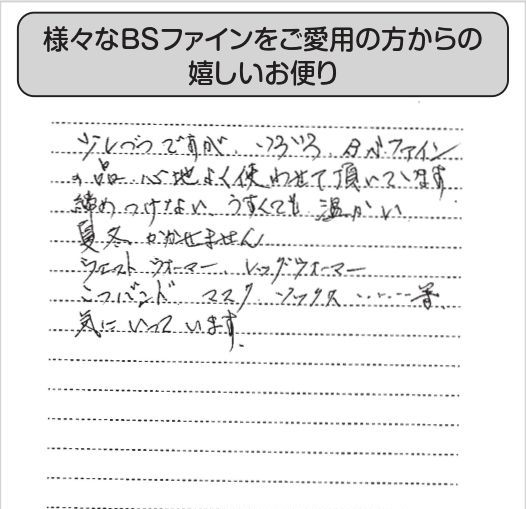 様々なBSファインをご愛用の方からの
嬉しいお便り
少しづつですが、いろいろ、BSファイン
の品、心地よく使わせて頂いています
締めつけない、うすくても温かい
夏冬、かかせません
ウエストウォーマー、レッグウォーマー
こつバンド、マスク、ソックス……等、
気にいっています。